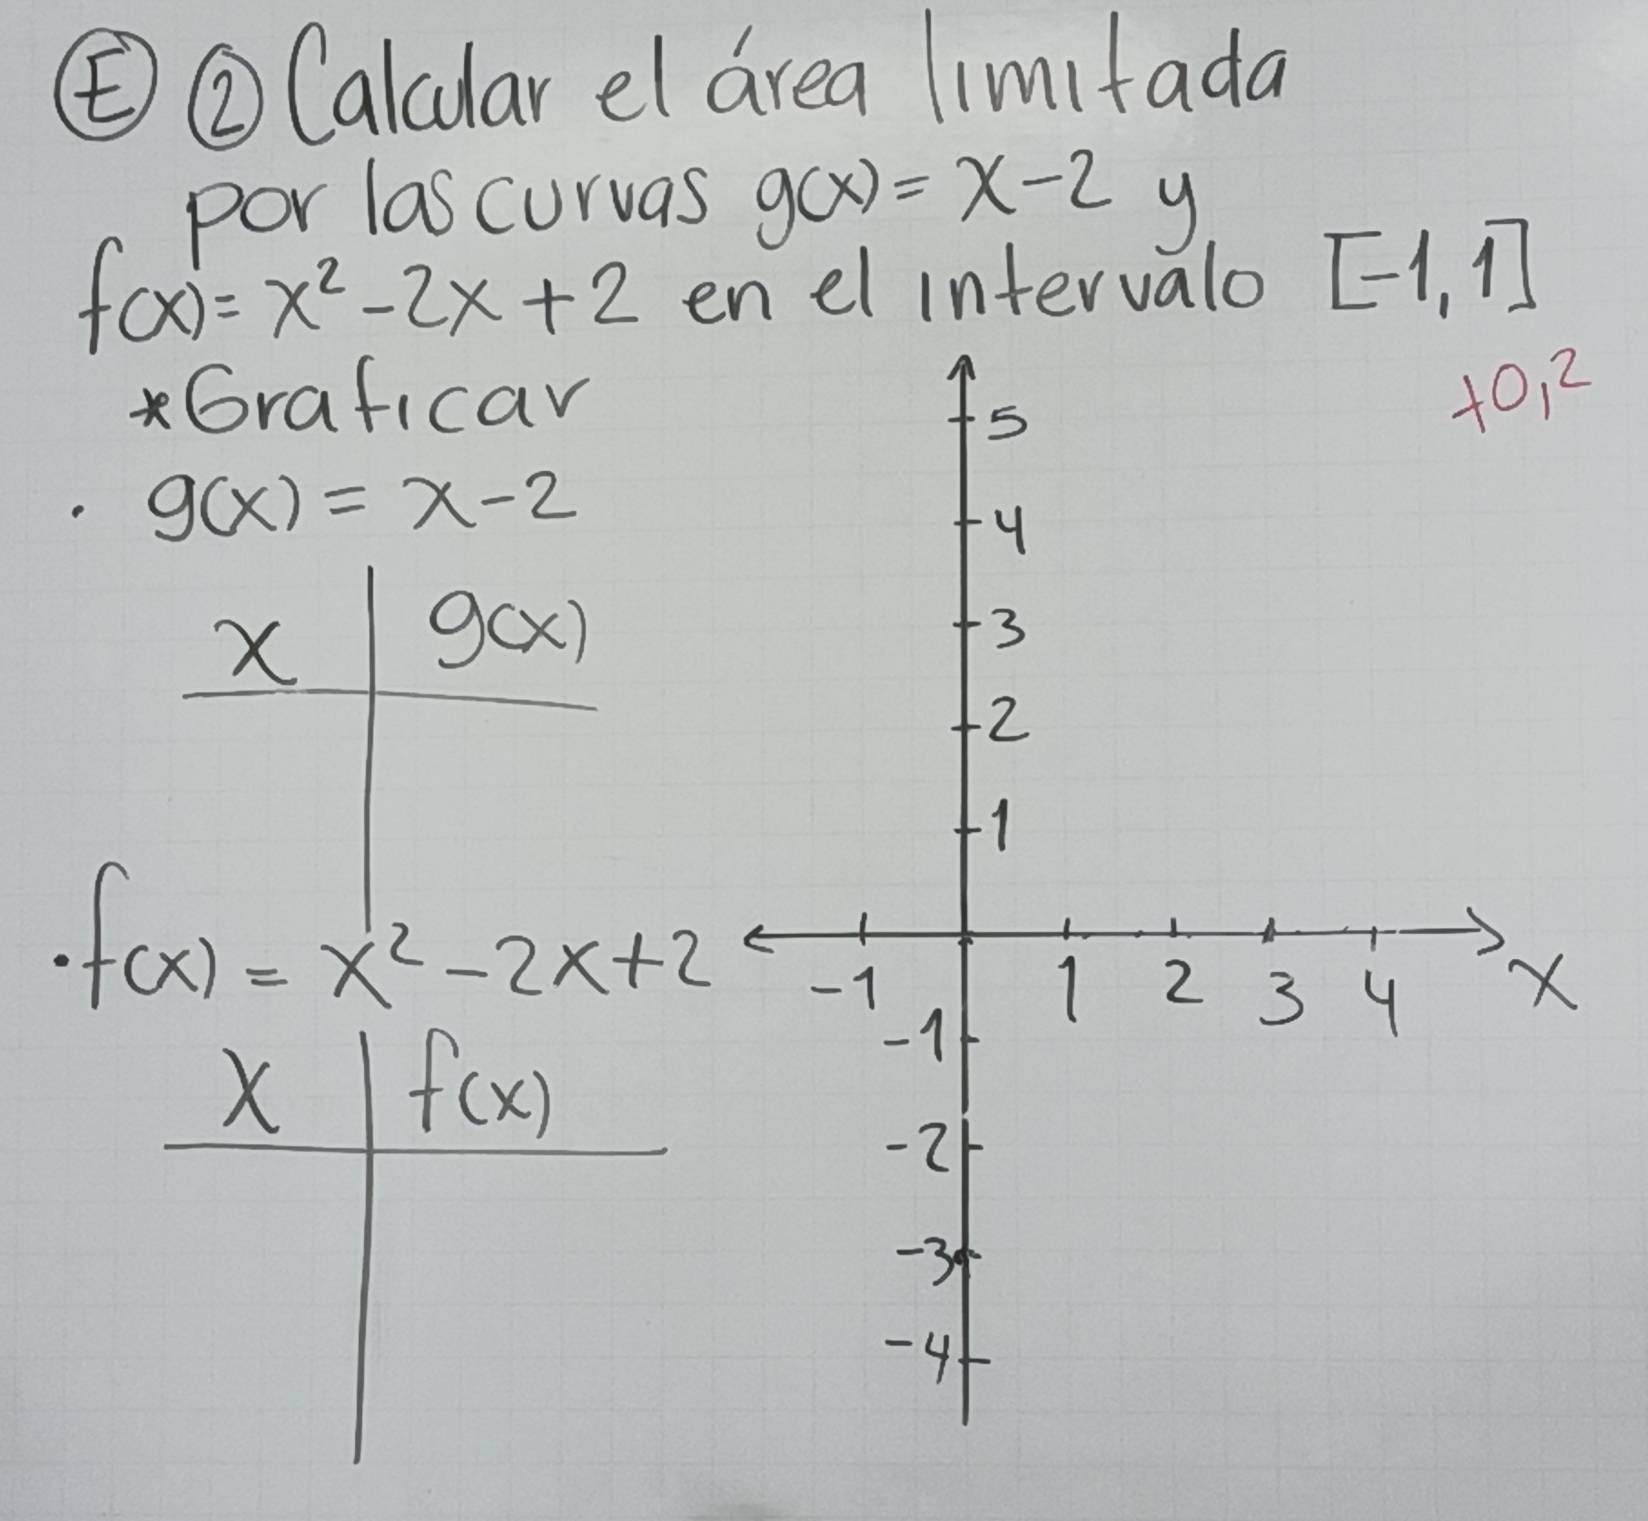 E ② Calcular el área limitada
por las curvas g(x) = x-2 y
f(x) = x² - 2x + 2 en el intervalo [-1, 1]
+0,2
*Graficar
· g(x) = x-2
x g(x)
·f(x) = x² - 2x+2
x f(x)
5
4
3
2
1
-1 1 2 3 4 x
-1
-2
-3
-4